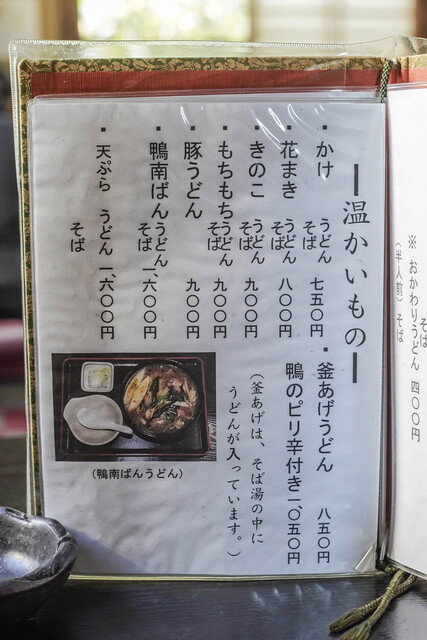 ※ おかわりうどん 四〇〇円
そば
（半人前） そば
温かいもの
・かけ うどん そば 七五〇円
・花まき うどん そば 八〇〇円
・きのこ うどん そば 九〇〇円
・もちもち うどん そば 九〇〇円
・豚うどん 九〇〇円
・鴨南ばん うどん そば 一、六〇〇円
・天ぷら うどん そば 一、六〇〇円
・釜あげうどん 八五〇円
鴨のピリ辛付き 二、〇五〇円
（釜あげは、そば湯の中に
うどんが入っています。）
（鴨南ばんうどん）